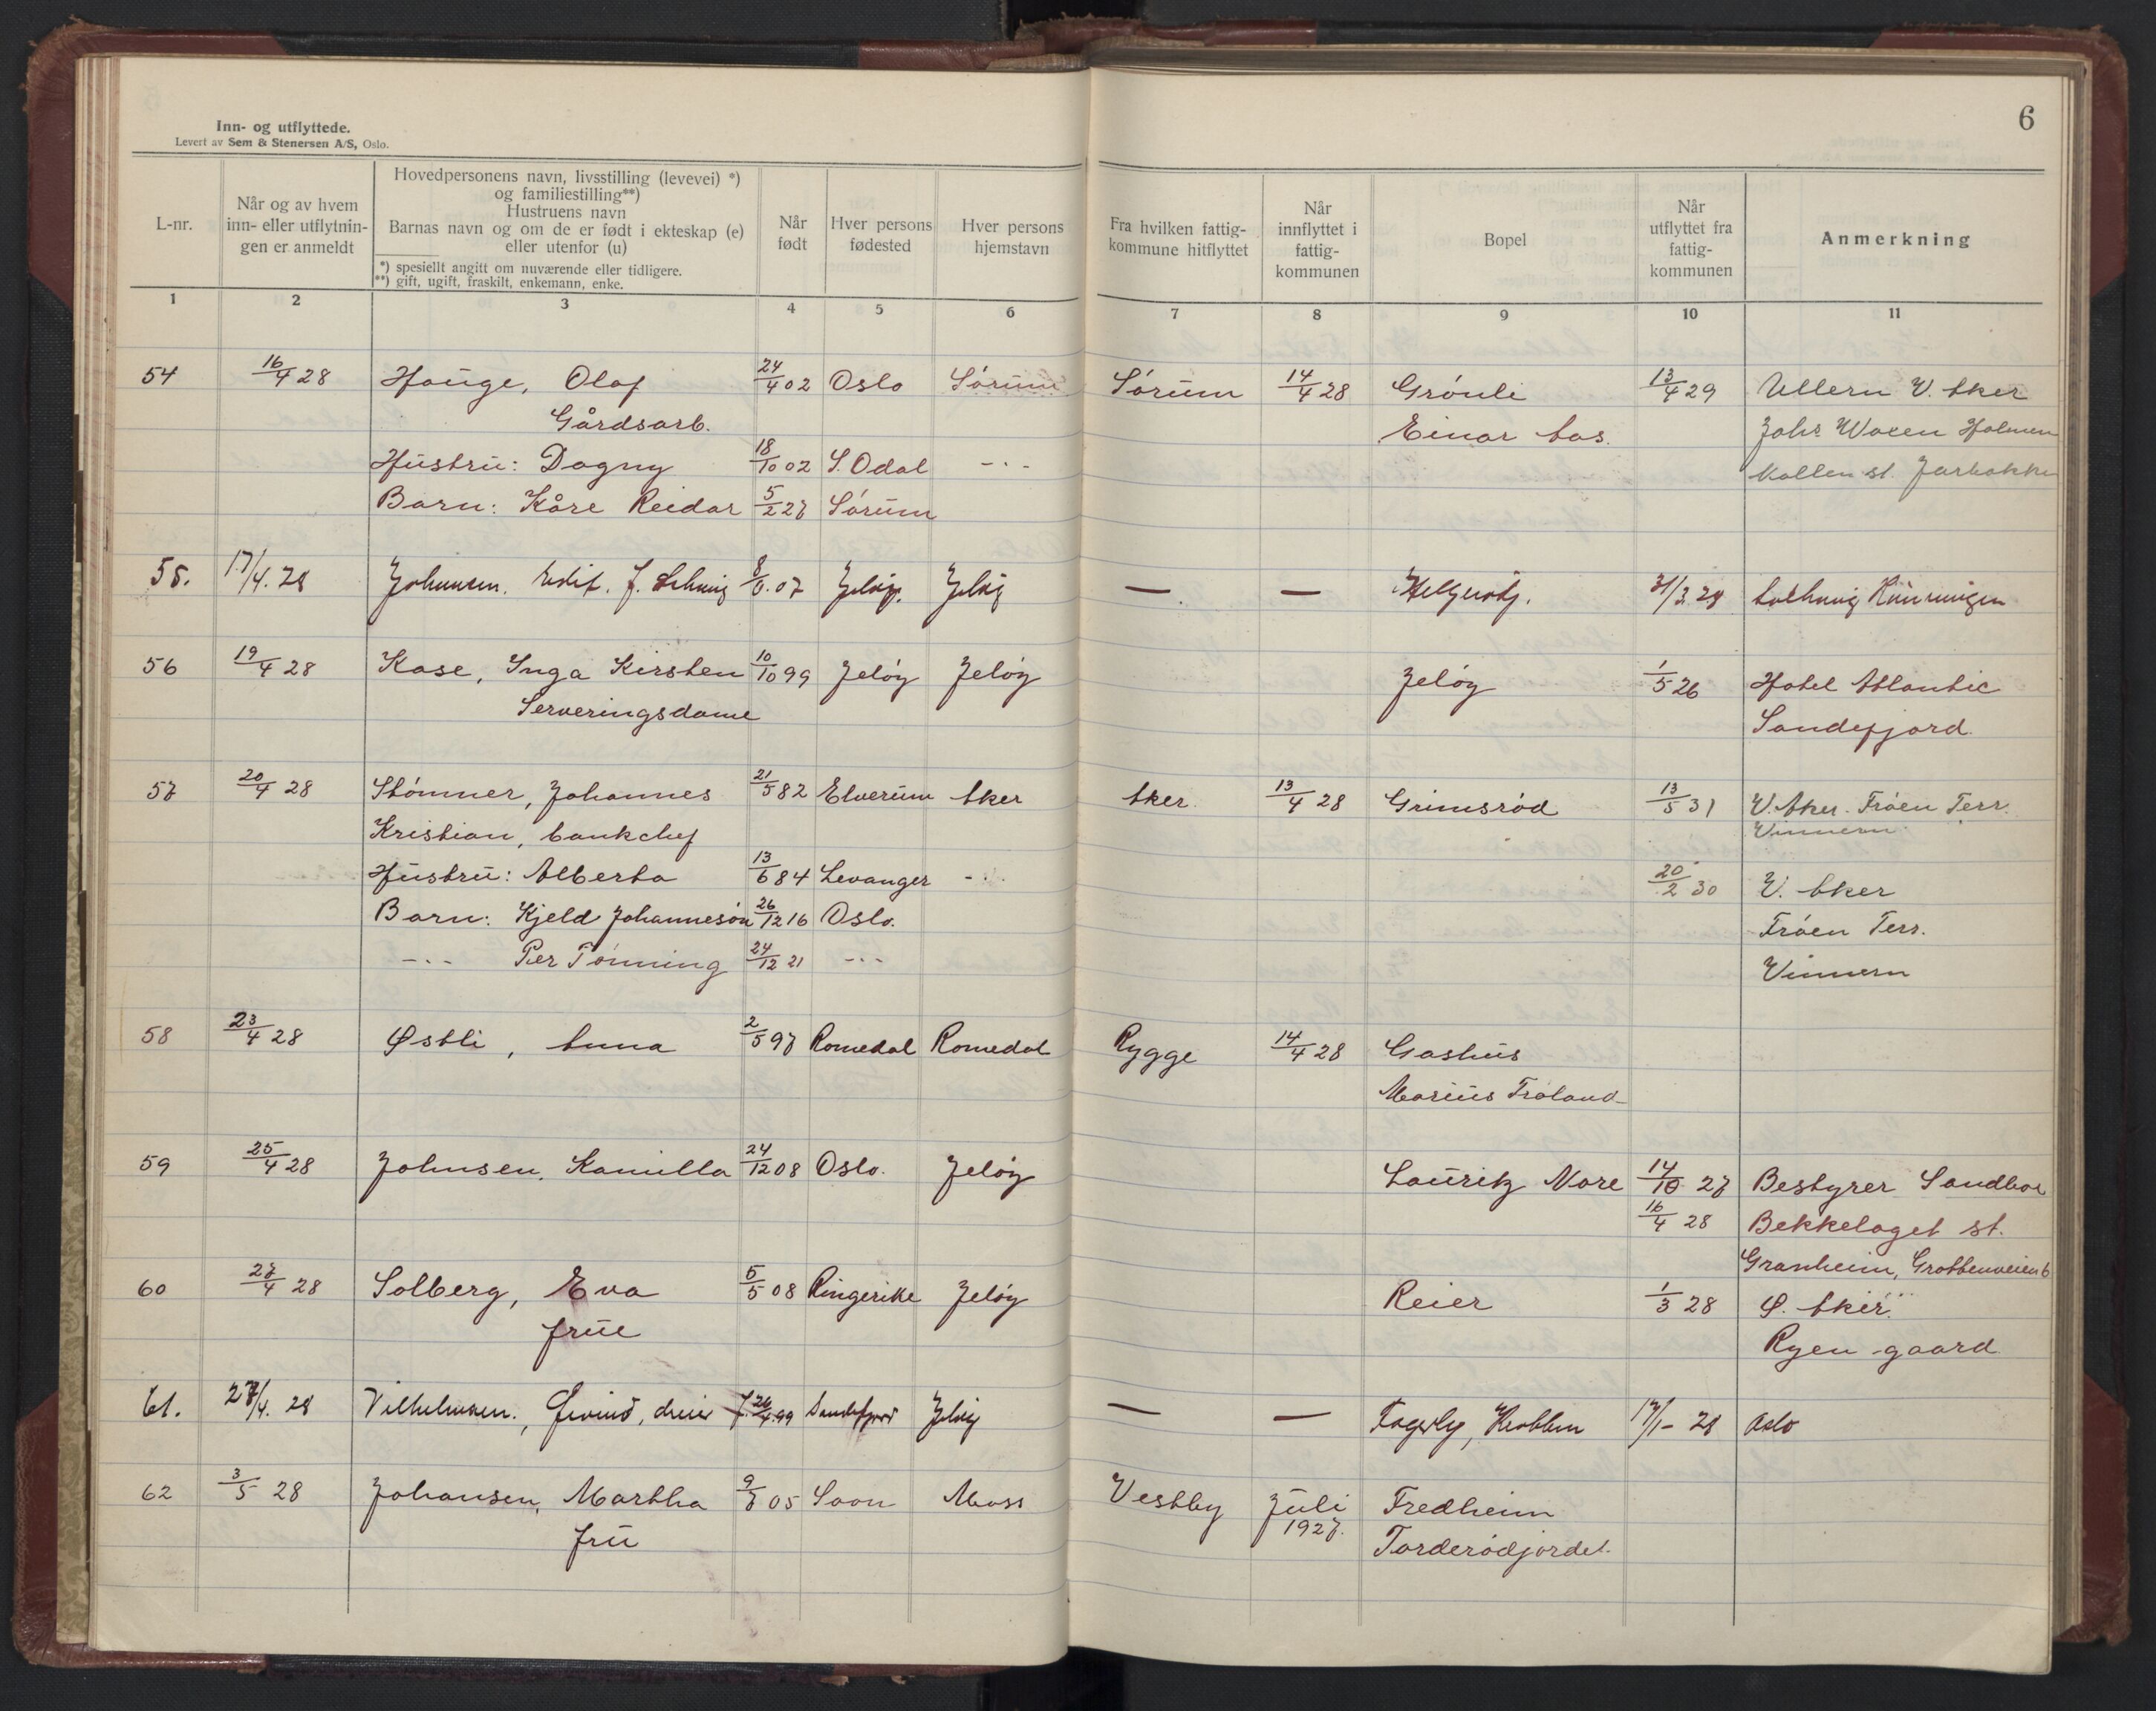 6
Inn- og utflyttede.
Levert av Sem & Stenersen A/S, Oslo.
L-nr.
Når og av hvem inn- eller utflytnin-gen er anmeldt
Hovedpersonens navn, livsstilling (levevei) *)
og familiestilling**)
Hustruens navn
Barnas navn og om de er født i ekteskap (e)
eller utenfor (u)
*) spesielt angitt om nuværende eller tidligere.
**) gift, ugift, fraskilt, enkemann, enke.
Når født
Hver persons fødested
Hver persons hjemstavn
Fra hvilken fattig-kommune hitflyttet
Når innflyttet i fattig-kommunen
Bopel
Når utflyttet fra fattig-kommunen
Anmerkning
1 2 3 4 5 6 7 8 9 10 11
54 16/4 28 Hauge, Olaf 24/4 02 Oslo Sørum Sørum 14/4 28 Grønli 13/4 29 Ullern V. Aker
Gårdsarb. Einar Aas. Johs Waxen Holmen
Hustru: Dagny 18/10 02 S. Odal -"- Kollen st.
Barn: Kåre Reidar 5/2 27 Sørum
55. 17/4. 28 Johansen. 07 Jeløy. Jeløy — —
56 19/4 28 Kase, Inga Kirsten 10/10 99 Jeløy Jeløy Jeløy 1/5 26 Hotel Atlantic
Serveringsdame Sandefjord.
57 20/4 28 Stømner, Johannes 21/5 82 Elverum Aker Aker. 13/4 28 Grimsrød 13/5 31 V. Aker. Frøen Terr.
Kristian, bankchef Vinnern
Hustru: Alberta 13/6 84 Levanger -"- 20/2 30 V. Aker
Barn: Kjeld Johannesøn 26/12 16 Oslo. Frøen Terr.
-"- Per Tønning 24/12 21 -"- Vinnern
58 23/4 28 Østli, Anna 2/5 97 Romedal Romedal Rygge 14/4 28 Gashus
Marius Traland
59 25/4 28 Johnsen, Kamilla 24/12 08 Oslo. Jeløy Lauritz Nore 14/10 27 Bestyrer
16/4 28 Bekkelaget st.
Granheim, Grottenveien 6
60 27/4 28 Solberg, Eva 5/5 08 Ringerike Jeløy Reier 1/3 28 Ø. Aker.
frue Ryen gaard
61. 27/4. 28 Vilhelmsen., Øivind, 26/4.99 Sandefjord Jeløy — — Fagerly, 17/1- 28 Oslo
62 3/5 28 Johansen, Martha 9/7 05 Soon Moss Vestby Juli Fredheim
fru 1927. Torderødjordet.